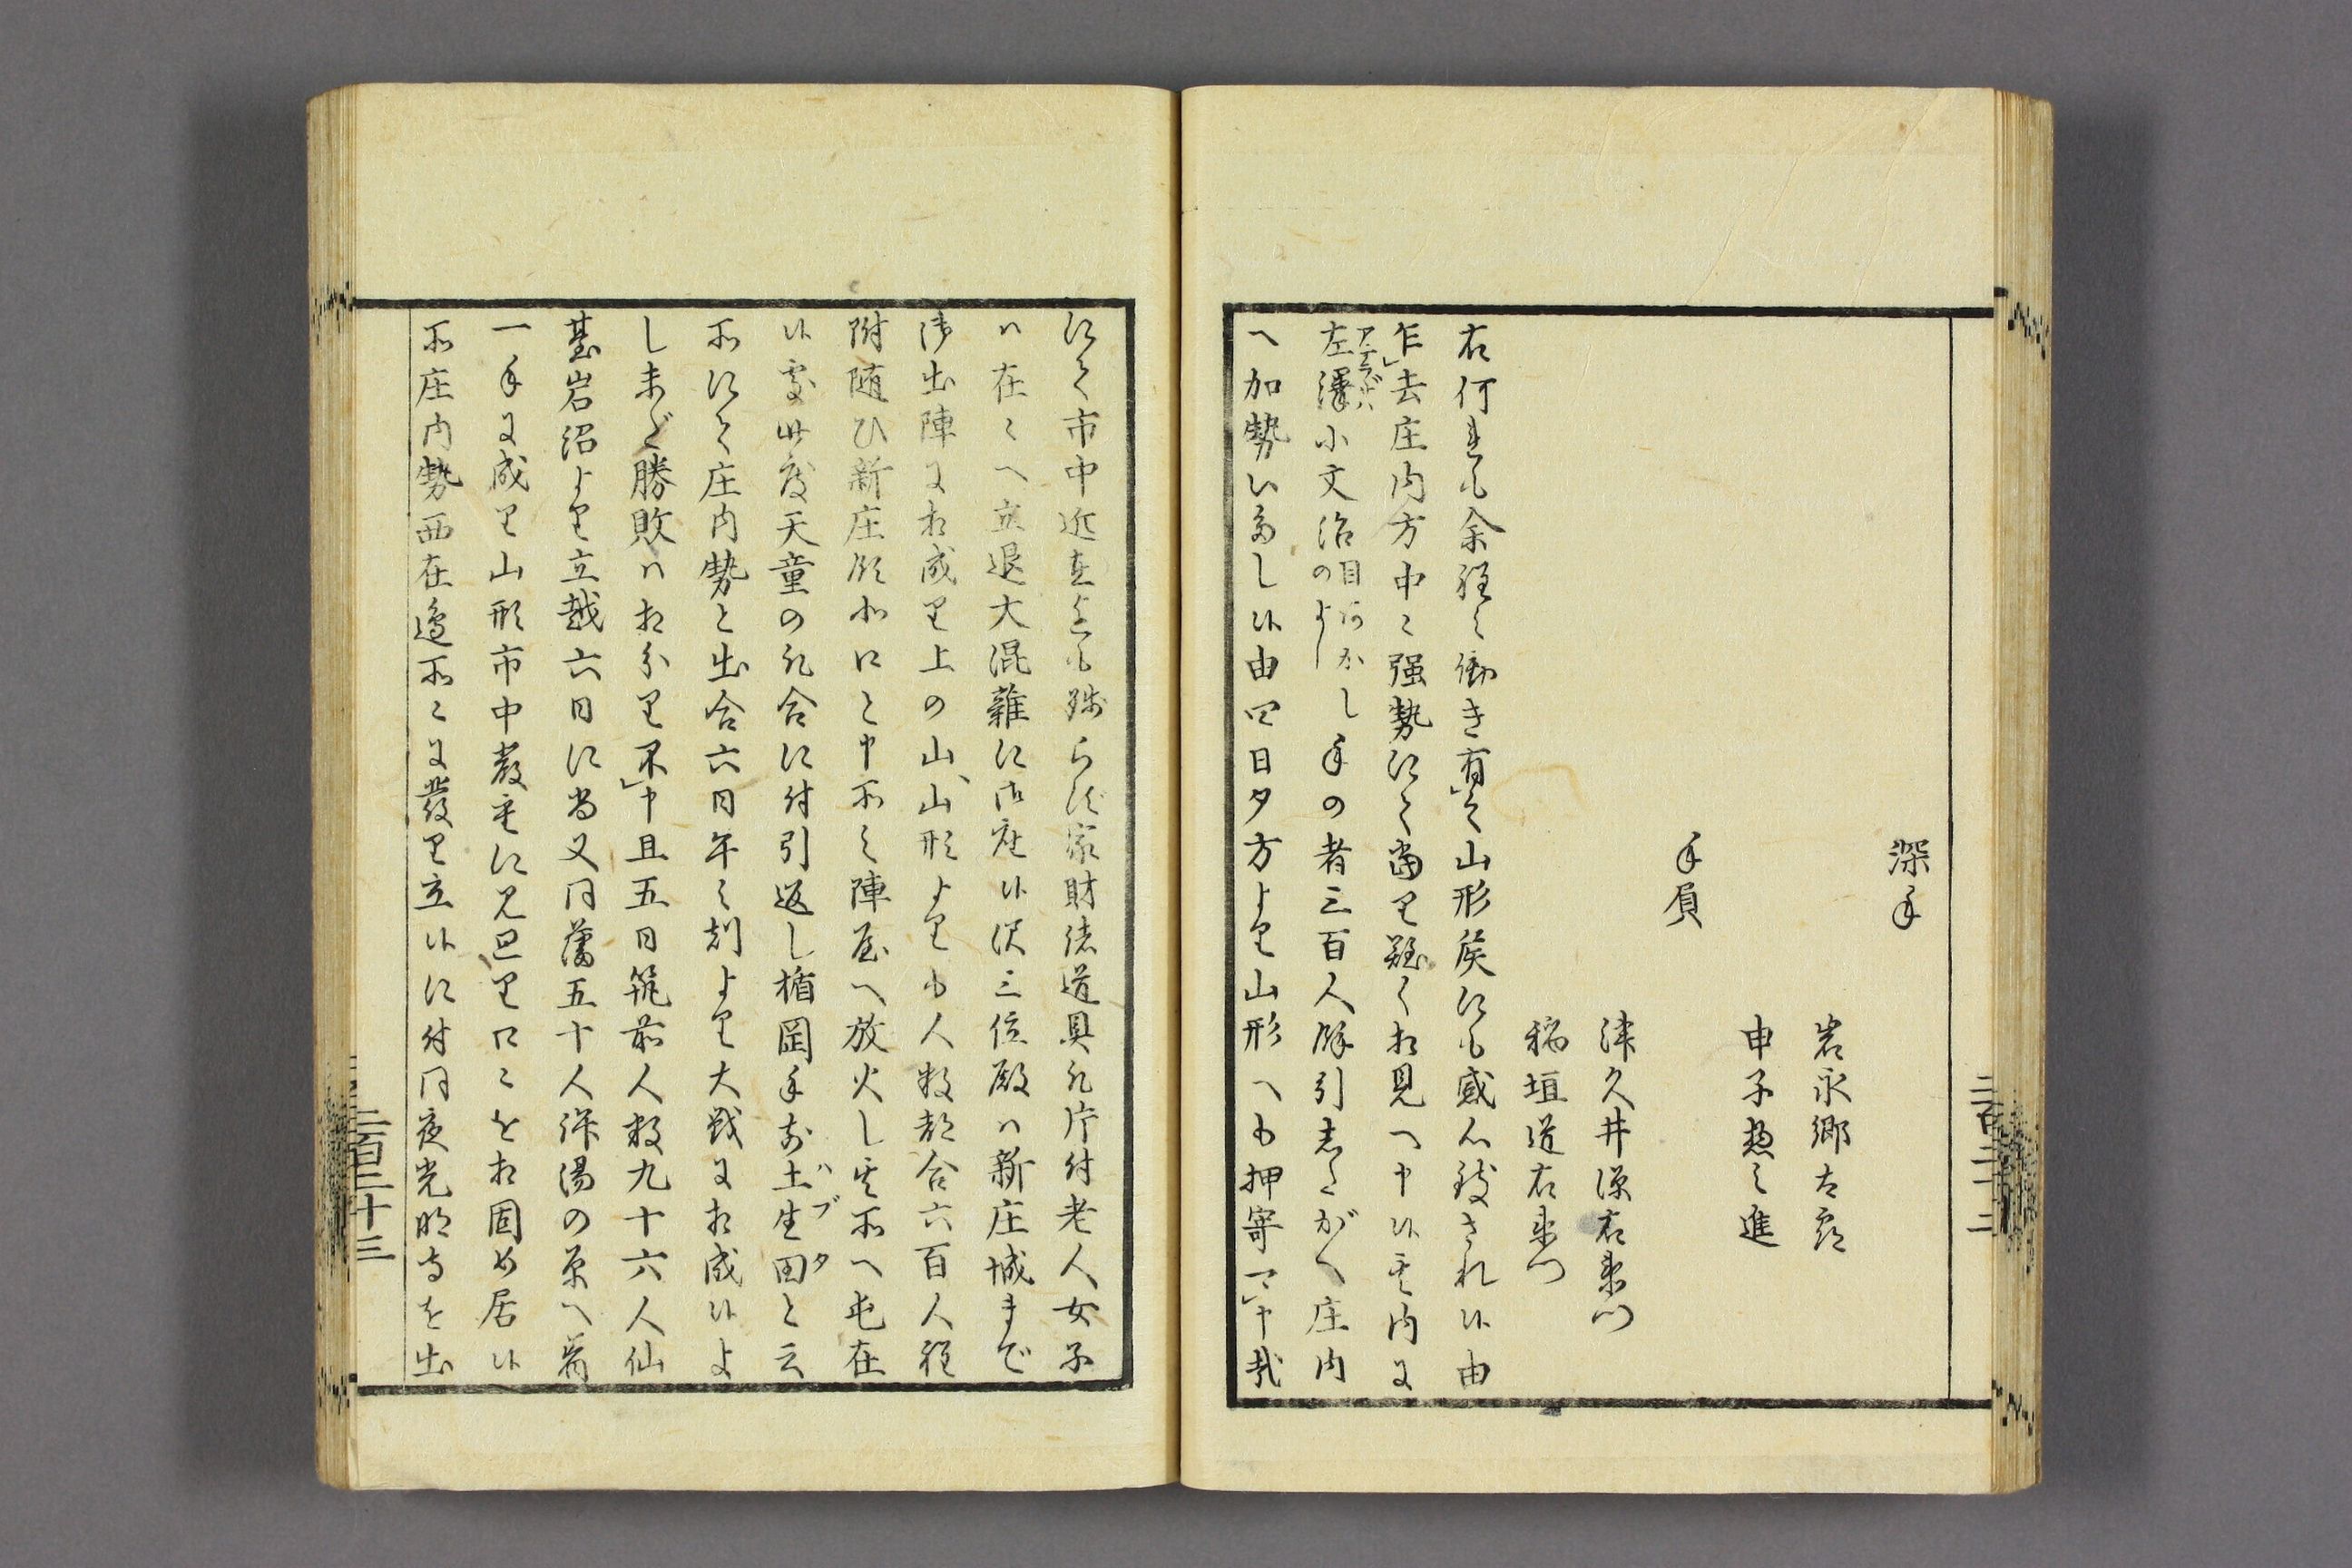 深手
岩永郷太郎
申子惣之進
手負
津久井深右衛門
稲垣道右衛門
右何連も余程之働き有て山形侯にも感心致され候由
乍去庄内方中々强勢にて当り難く相見へ申候其内に
左澤小文治 手の者三百人餘引志たがへ庄内
アテラザハ
目 かし
のよし
へ加勢いたし候由四日夕方より山形へも押寄可申哉
二百二十二
にて市中近在とも残らず家財諸道具取片付老人女子
ハ在々へ立退大混雑に御座候沢三位殿ハ新庄城まで
御出陣に相成り上の山、山形よりも人数都合六百人程
附随ひ新庄領 口と申所之陣屋へ放火し其所へ屯在
候處此度天童の取合に付引返し楯岡手前土生田と云
ハブタ
所にて庄内勢と出合六日午之刻より大戦に相成候よ
し未だ勝敗ハ相分り不申且五日筑前人数九十六人仙
臺岩沼より立越六日に当又同藩五十人 湯の原へ着
一手に成り山形市中 重に見廻り口々を相固め居候
所庄内勢西在邊所々に發り立候に付同夜光明寺を出
二百二十三